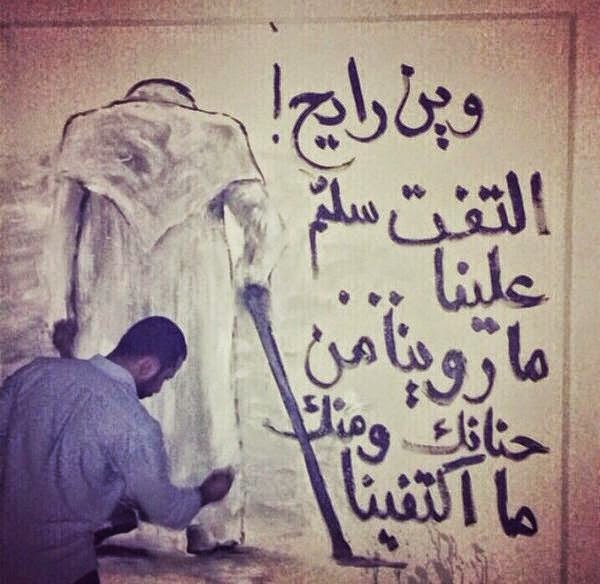 وين رايح!
التفت سلّم
علينا
ما روينا من
حنانك ومنك
ما اكتفينا